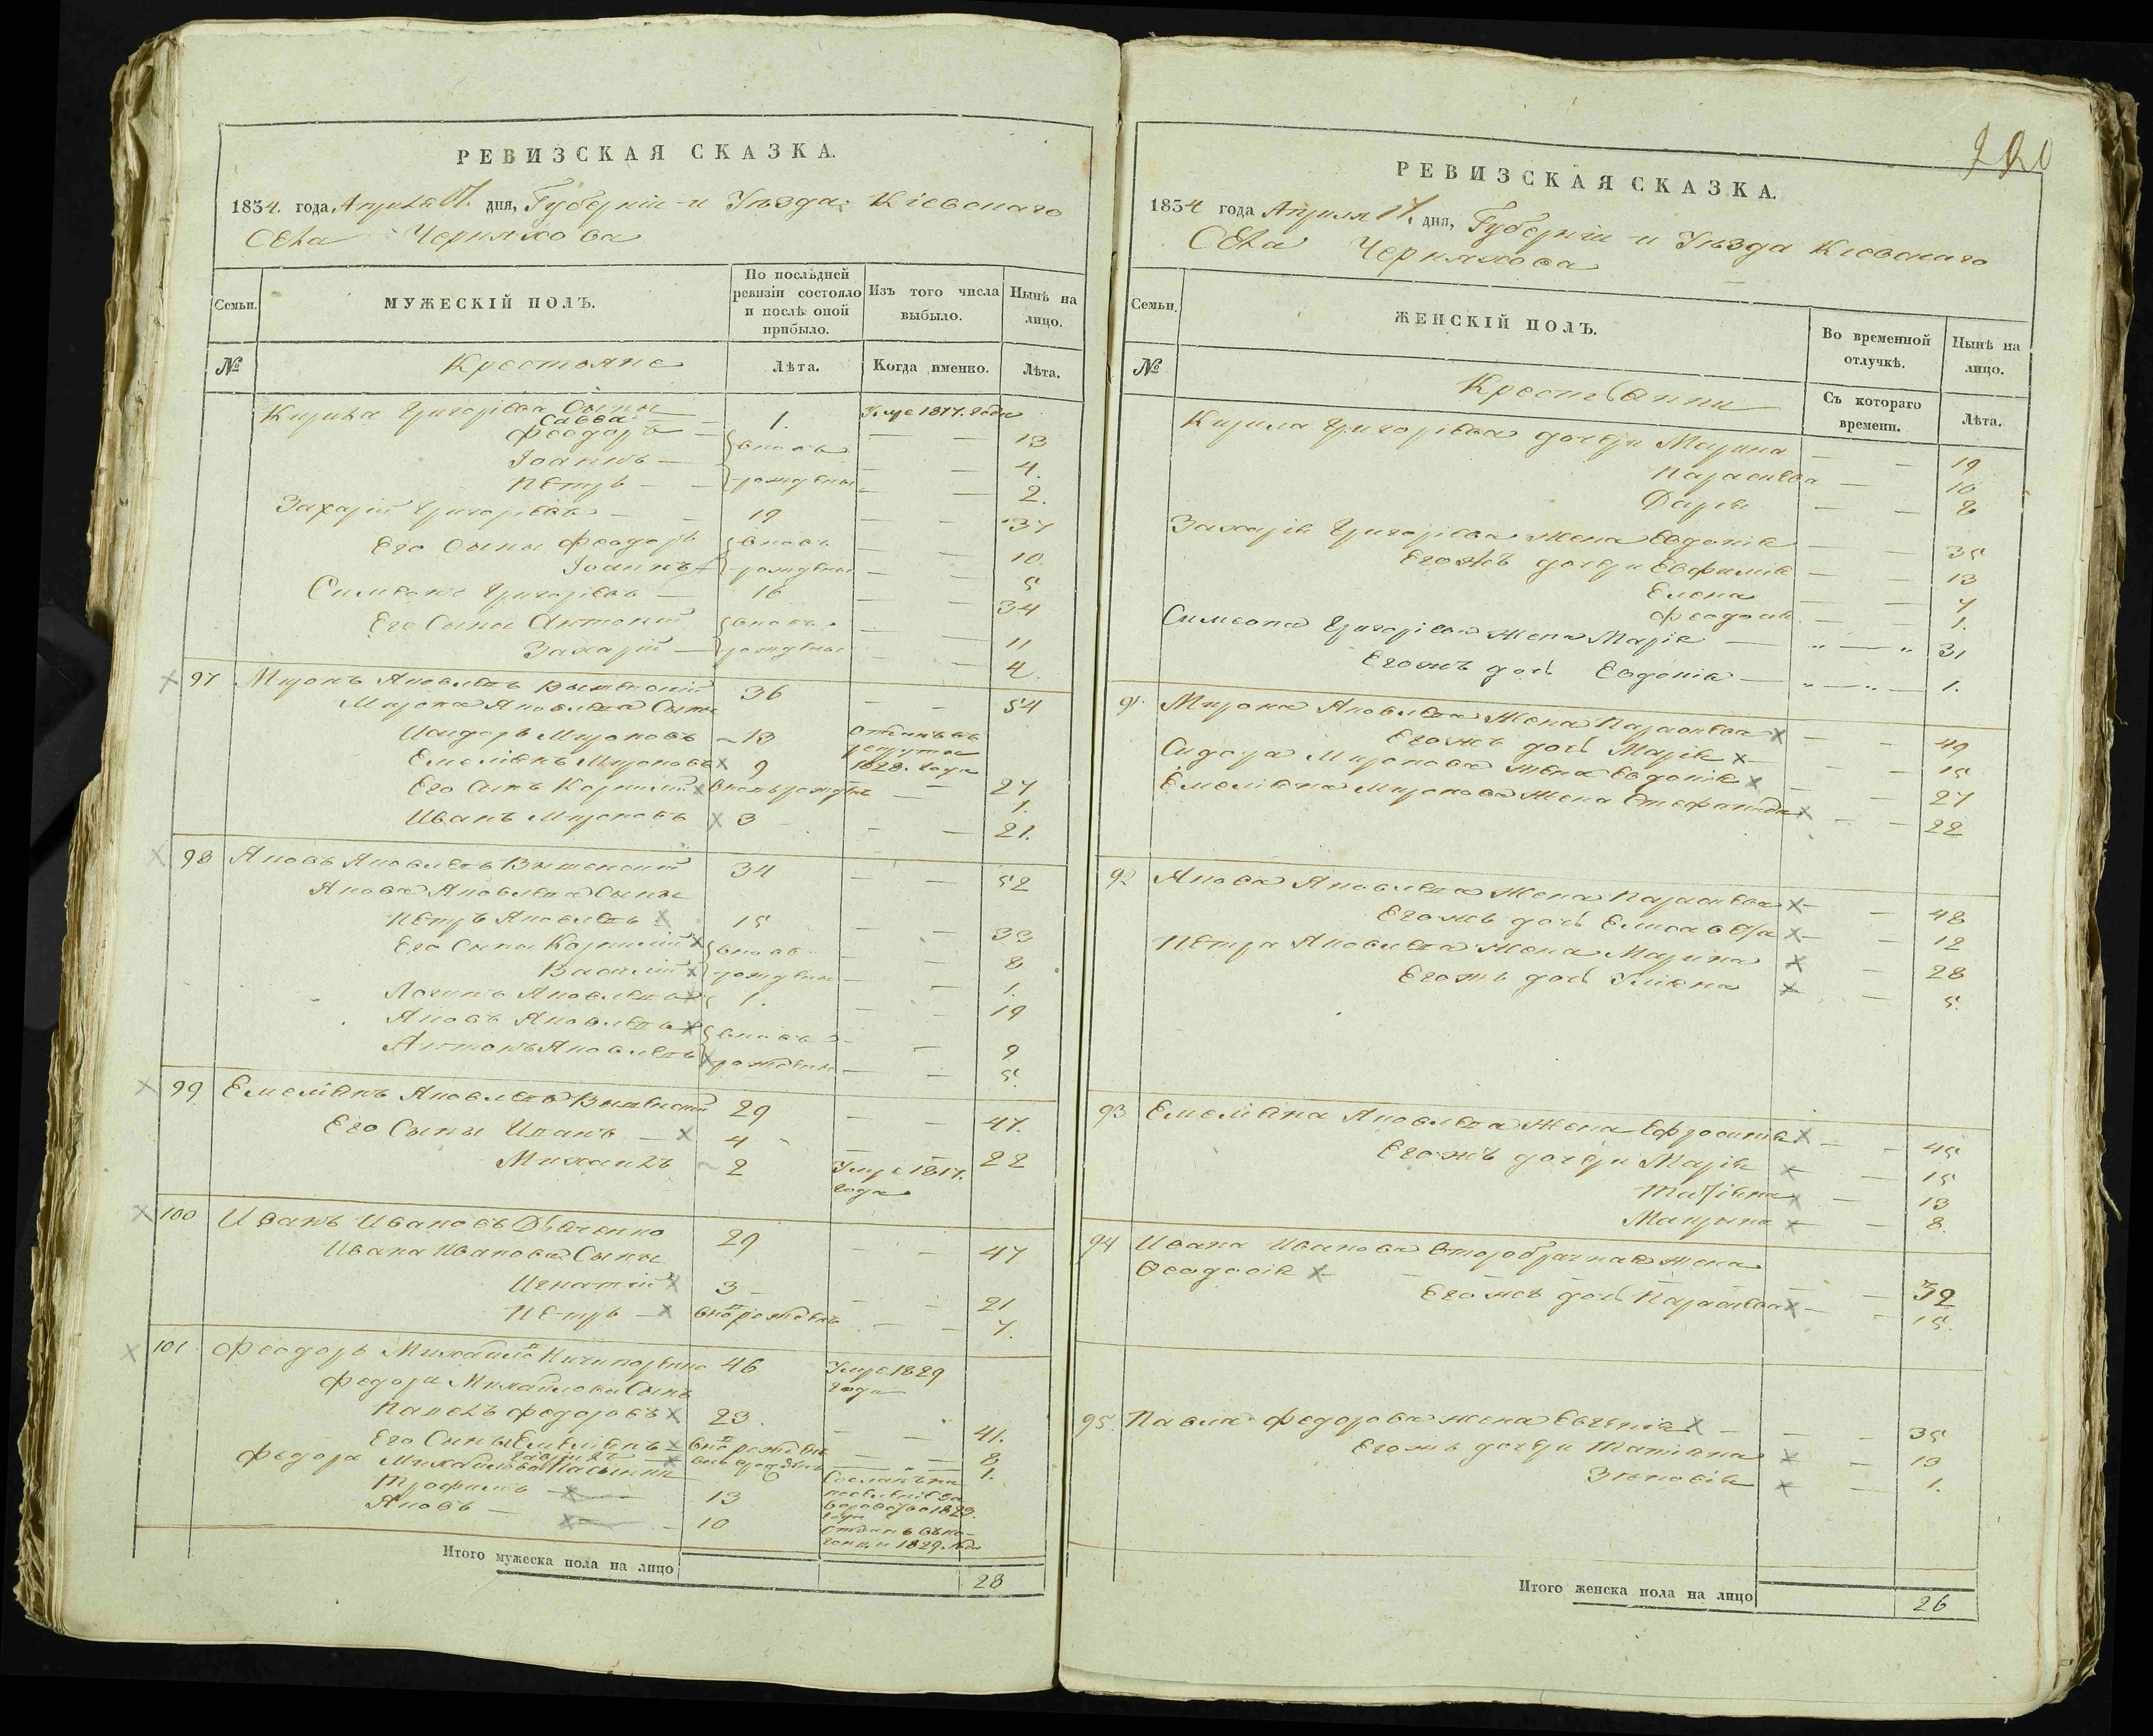 РЕВИЗСКАЯ СКАЗКА.
1834. года Апреля 17. дня, Губерніи и Уѣзда Кіевскаго
Села Черняхова
Семьи.
МУЖЕСКІЙ ПОЛЪ.
По послѣдней ревизіи состояло и послѣ оной прибыло.
Изъ того числа выбыло.
Нынѣ на лицо.
№
Крестьяне
Лѣта.
Когда именно.
Лѣта.
Кирила Григоріева Сыны
Савва 1. Умре 1817. года
Феодоръ вновь 13
Іоаннъ 4.
Петръ рожденны 2.
Захарій Григоріевъ 19 37
Его Сыны Феодоръ вновь 10
Іоаннъ рожденны 5
Симеонъ Григоріевъ 16 34
Его Сыны Антоній вновь 11
Захарій рожденны 4.
97 Миронъ Яковлевъ 36 54
Мирона Яковлева Сыны
Исидоръ Мироновъ 13 отданъ въ рекруты 1828. года
Емеліянъ Мироновъ 9 27
Его Сынъ Корнилій вновь рожденъ 1.
Иванъ Мироновъ 3 21.
98 Яковъ Яковлевъ 34 52
Якова Яковлева Сыны
Петръ Яковлевъ 15 33
Его Сыны Корнилій вновь 8
Василій рожденны 1.
Логинъ Яковлевъ 1. 19
Яковъ Яковлевъ вновь 9
Антонъ Яковлевъ рожденны 5.
99 Емеліянъ Яковлевъ 29 47.
Его Сыны Иванъ 4 22
Михаилъ 2 Умре 1817. года
100 Иванъ Ивановъ Дяченко 29 47
Ивана Иванова Сыны
Игнатій 3 21
Петръ вно рожденъ 7.
101 Феодоръ Михайло Ничипоренко 46 Умре 1829 года
Федора Михайлова Сынъ
Павелъ Федоровъ 23. 41.
Его Сыны Емеліянъ вно рожденъ 8
Гавріилъ 1.
Федора Михайлова Пасынки
Трофимъ 13 Сосланъ на поселеніе за воровство 1823. года
Яковъ 10 отданъ 1829. года
Итого мужеска пола на лицо 28
220
РЕВИЗСКАЯ СКАЗКА.
1834 года Апреля 17. дня, Губерніи и Уѣзда Кіевскаго
Села Черняхова
Семьи.
ЖЕНСКІЙ ПОЛЪ.
Во временной отлучкѣ.
Нынѣ на лицо.
№
Крестьянки
Съ котораго времени.
Лѣта.
Кирила Григоріева дочери Марина 19
Параскева 16
Дарія 8
Захарія Григоріева жена Евдокія 35
Егожъ дочери Евфимія 13
Елена 7
Феодосія 1.
Симеона Григоріева жена Марія 31
Егожъ дочь Евдокія 1.
91. Мирона Яковлева жена Параскева 49
Егожъ дочь Марія 15
Сидора Миронова жена Евдокія 27
Емеліяна Миронова жена Стефанида 22
92 Якова Яковлева жена Параскева 48
Егожъ дочь Елисавета 12
Петра Яковлева жена Марина 28
Егожъ дочь Уліяна 5.
93 Емеліяна Яковлева жена Ефросинія 45
Егожъ дочери Марія 15
Татіяна 13
Марина 8.
94 Ивана Иванова второбрачная жена
Феодосія 32
Егожъ дочь Параскева 15.
95. Павла Федорова жена Евгенія 35
Егожъ дочери Татіяна 13
Зѣновія 1.
Итого женска пола на лицо 26